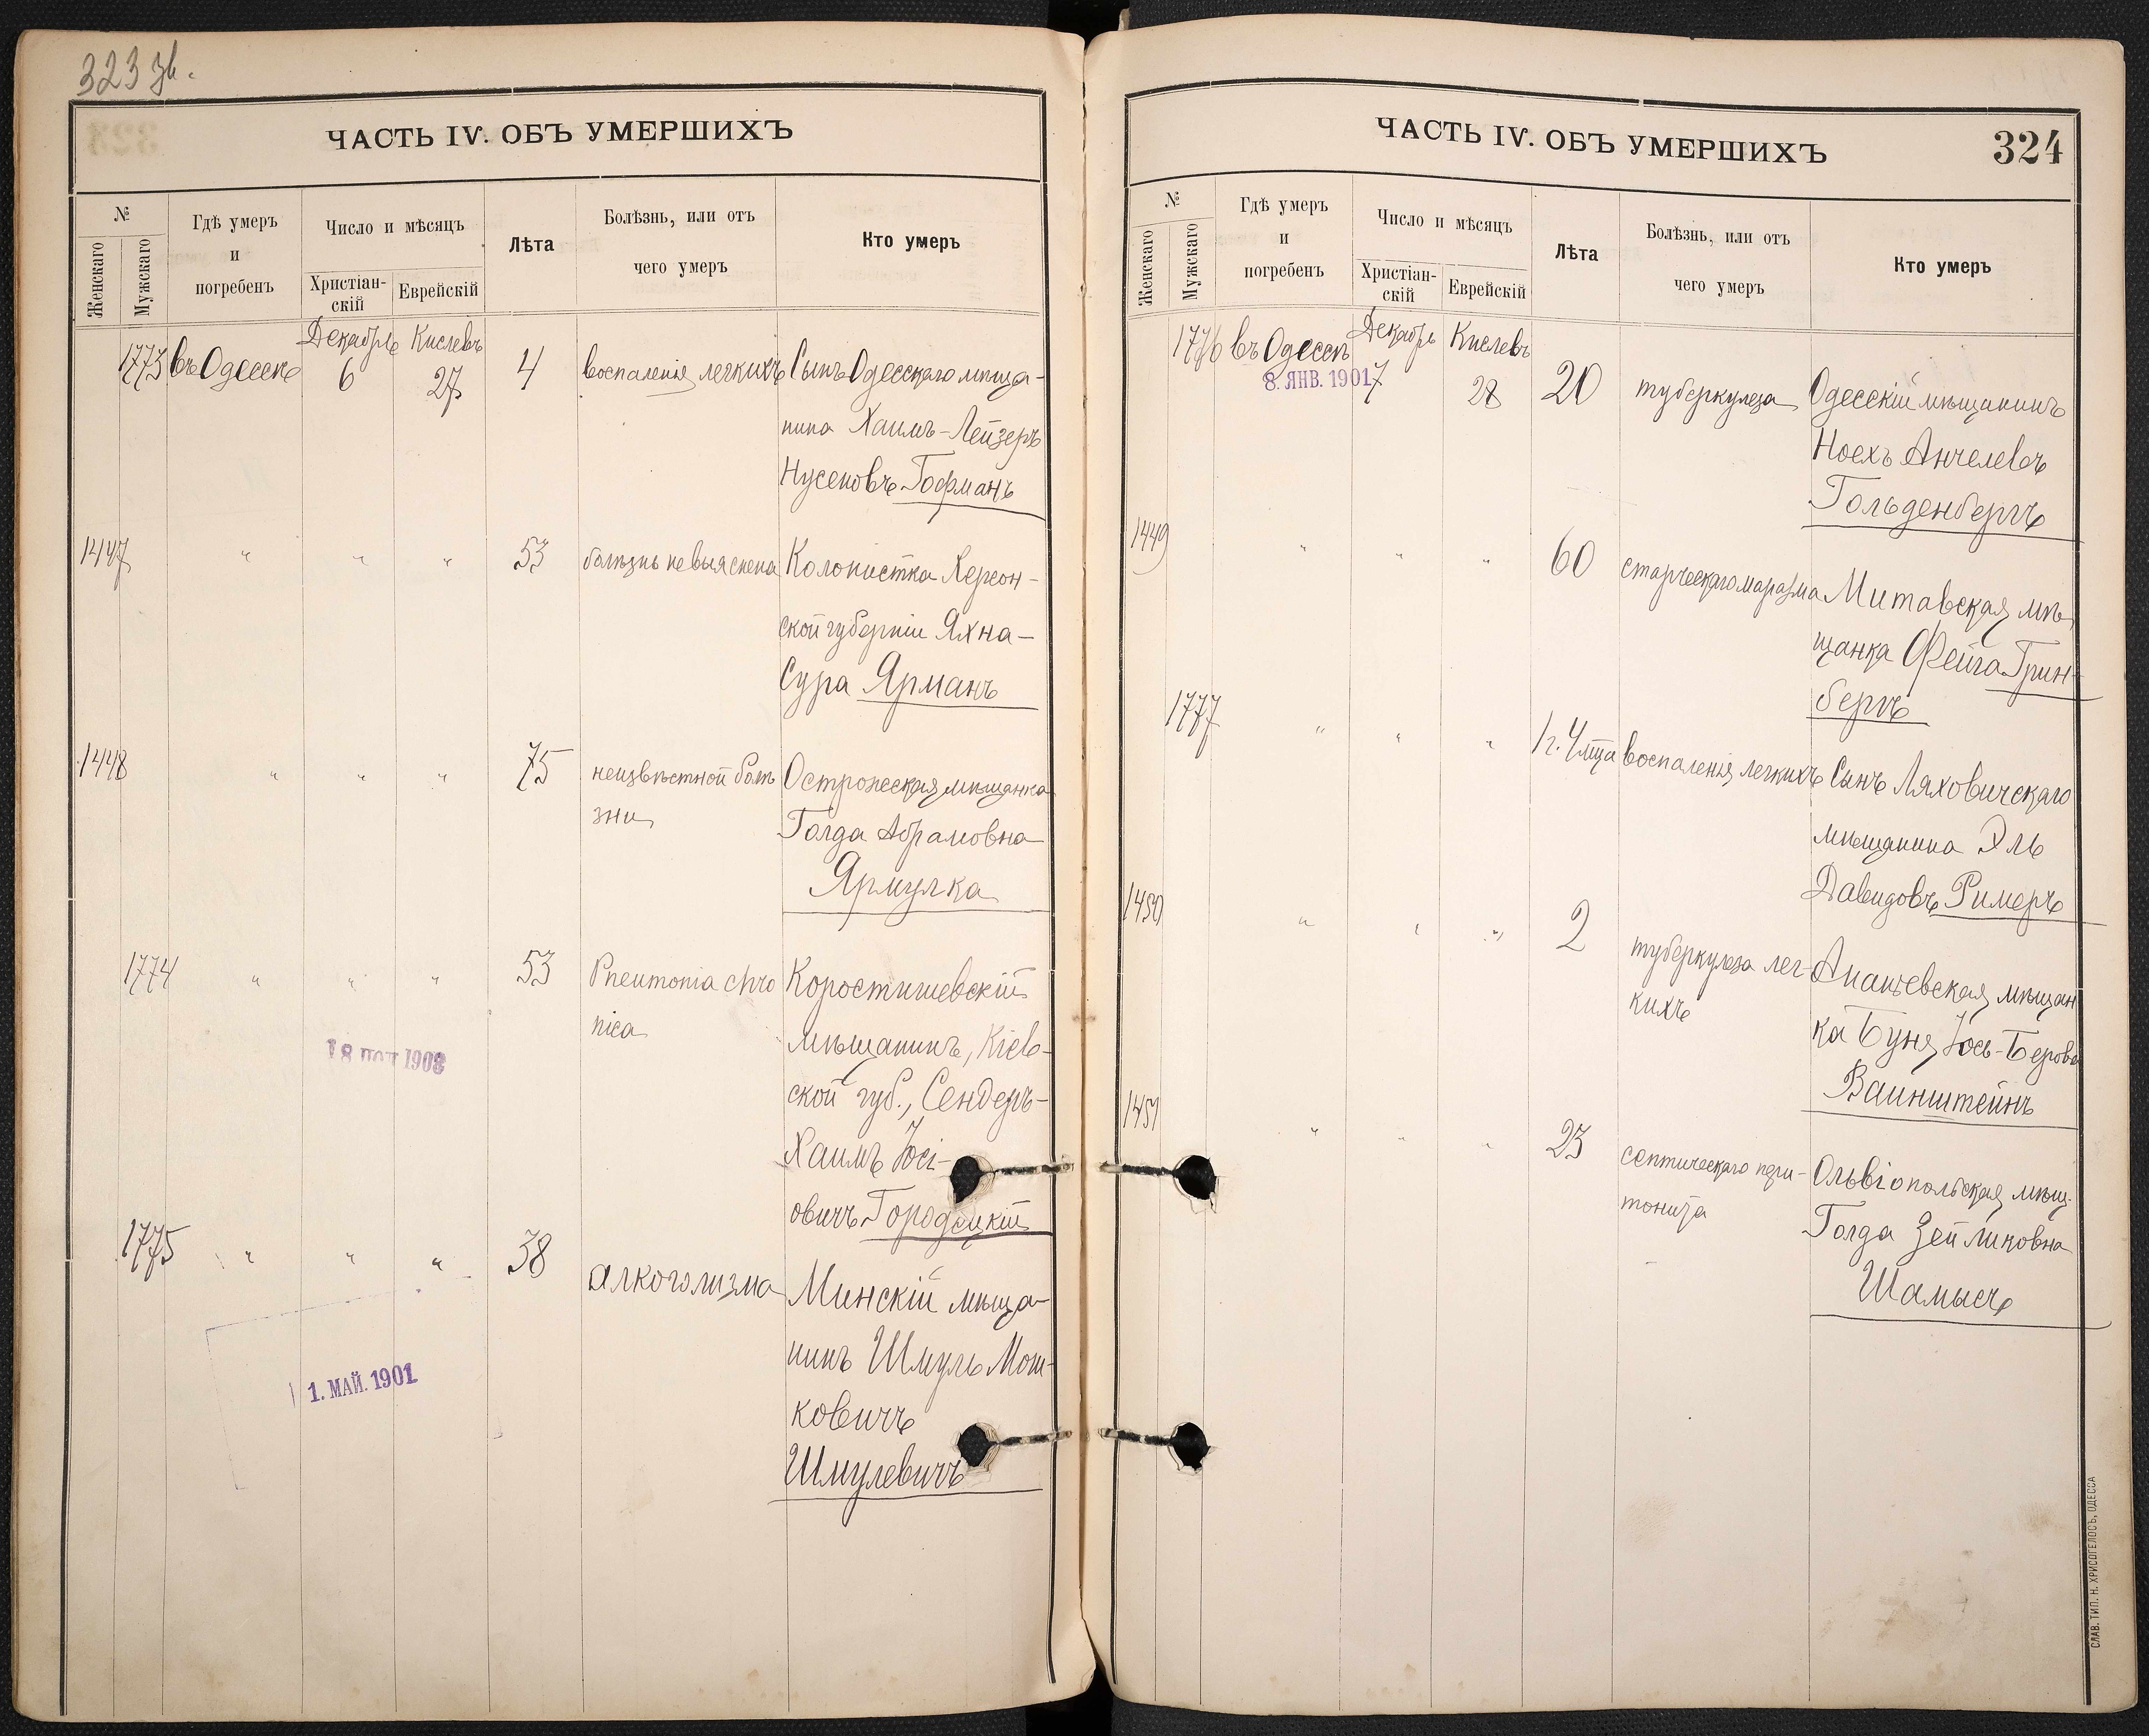 323 зв.
ЧАСТЬ IV. ОБЪ УМЕРШИХЪ
№
Женскаго
Мужскаго
Гдѣ умеръ
и
погребенъ
Число и мѣсяцъ
Христіан-
скій
Еврейскій
Лѣта
Болѣзнь, или отъ
чего умеръ
Кто умеръ
Декабрь Кислевъ
1773 въ Одессѣ 6 27 4 воспаленія легкихъ Сынъ Одесскаго мѣща-
нина Хаимъ-Лейзеръ
Нусеновъ Гофманъ
1447 " " " 53 болѣзнь не выяснена Колонистка Херсон-
ской губерніи Яхна-
Сура Ярманъ
1448 " " " 75 неизвѣстной болѣ Острожская мѣщанка
зни Голда Абрамовна
Ярмулка
1774 " " " 53 Pneumonia chro Коростишевскій
nica мѣщанинъ, Кіев-
ской губ., Сендеръ-
18 1903
Хаимъ Іосі-
овичъ Городецкій
1775 " " " 38 алкоголизма Минскій мѣща-
нинъ Шмуль Мош-
1. МАЙ. 1901
ковичъ
Шмулевичъ
ЧАСТЬ IV. ОБЪ УМЕРШИХЪ
324
№
Женскаго
Мужскаго
Гдѣ умеръ
и
погребенъ
Число и мѣсяцъ
Христіан-
скій
Еврейскій
Лѣта
Болѣзнь, или отъ
чего умеръ
Кто умеръ
Декабрь Кислевъ
1776 въ Одессѣ 7 28 20 туберкулеза Одесскій мѣщанинъ
8. ЯНВ. 1901
Ноехъ Анчелевъ
Гольденбергъ
1449 " " " 60 старческаго маразма Митавская мѣ-
щанка Фейга Грин-
бергъ
1777 " " " 1 г. 4 мца воспаленія легкихъ Сынъ Ляховичскаго
мѣщанина Эль
Давидовъ Римеръ
1450 " " " 2 туберкулеза лег- Ананьевская мѣщан
кихъ ка Буня Іось-Берова
Ваинштейнъ
1451 " " " 23 септическаго пери- Ольвіопольская мѣщ.
тонита Голда Зейликовна
Шамысъ
СЛАВ. ТИП. Н. ХРИСОГЕЛОСЪ, ОДЕССА